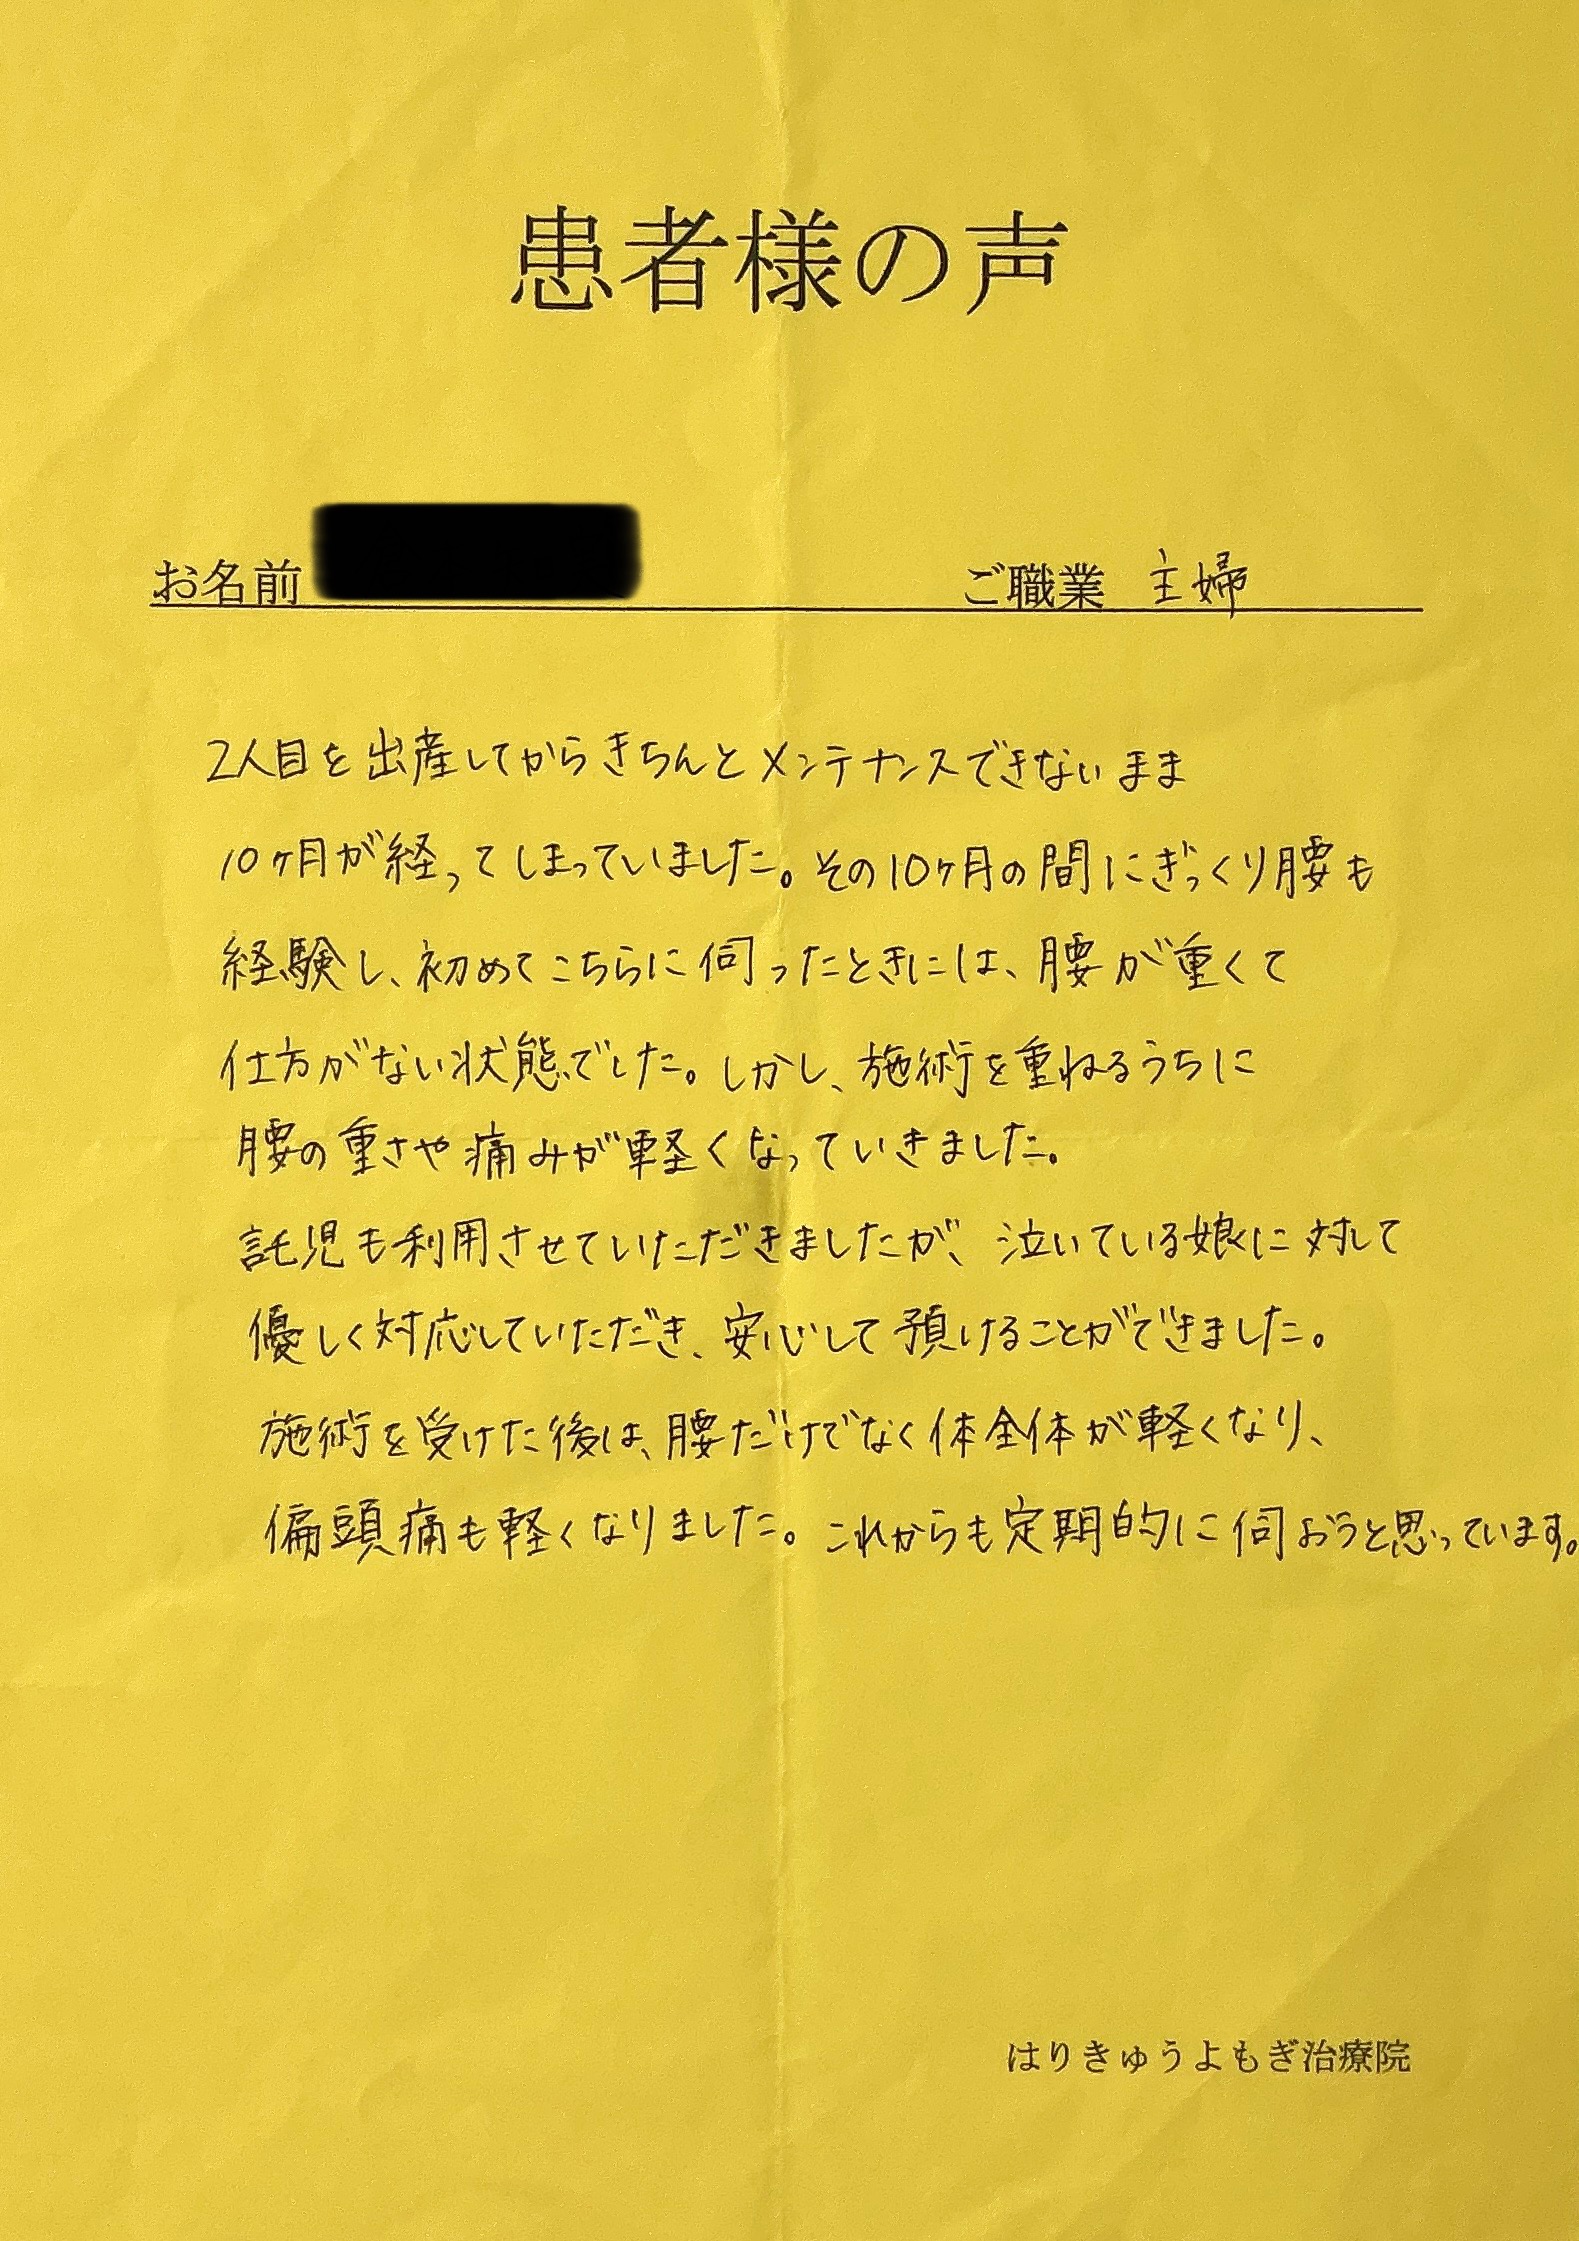 患者様の声
お名前 ご職業 主婦
2人目を出産してからきちんとメンテナンスできないまま
10ヶ月が経ってしまっていました。その10ヶ月の間にぎっくり腰も
経験し、初めてこちらに伺ったときには、腰が重くて
仕方がない状態でした。しかし、施術を重ねるうちに
腰の重さや痛みが軽くなっていきました。
託児も利用させていただきましたが、泣いている娘に対して
優しく対応していただき、安心して預けることができました。
施術を受けた後は、腰だけでなく体全体が軽くなり、
偏頭痛も軽くなりました。これからも定期的に伺おうと思っています。
はりきゅうよもぎ治療院